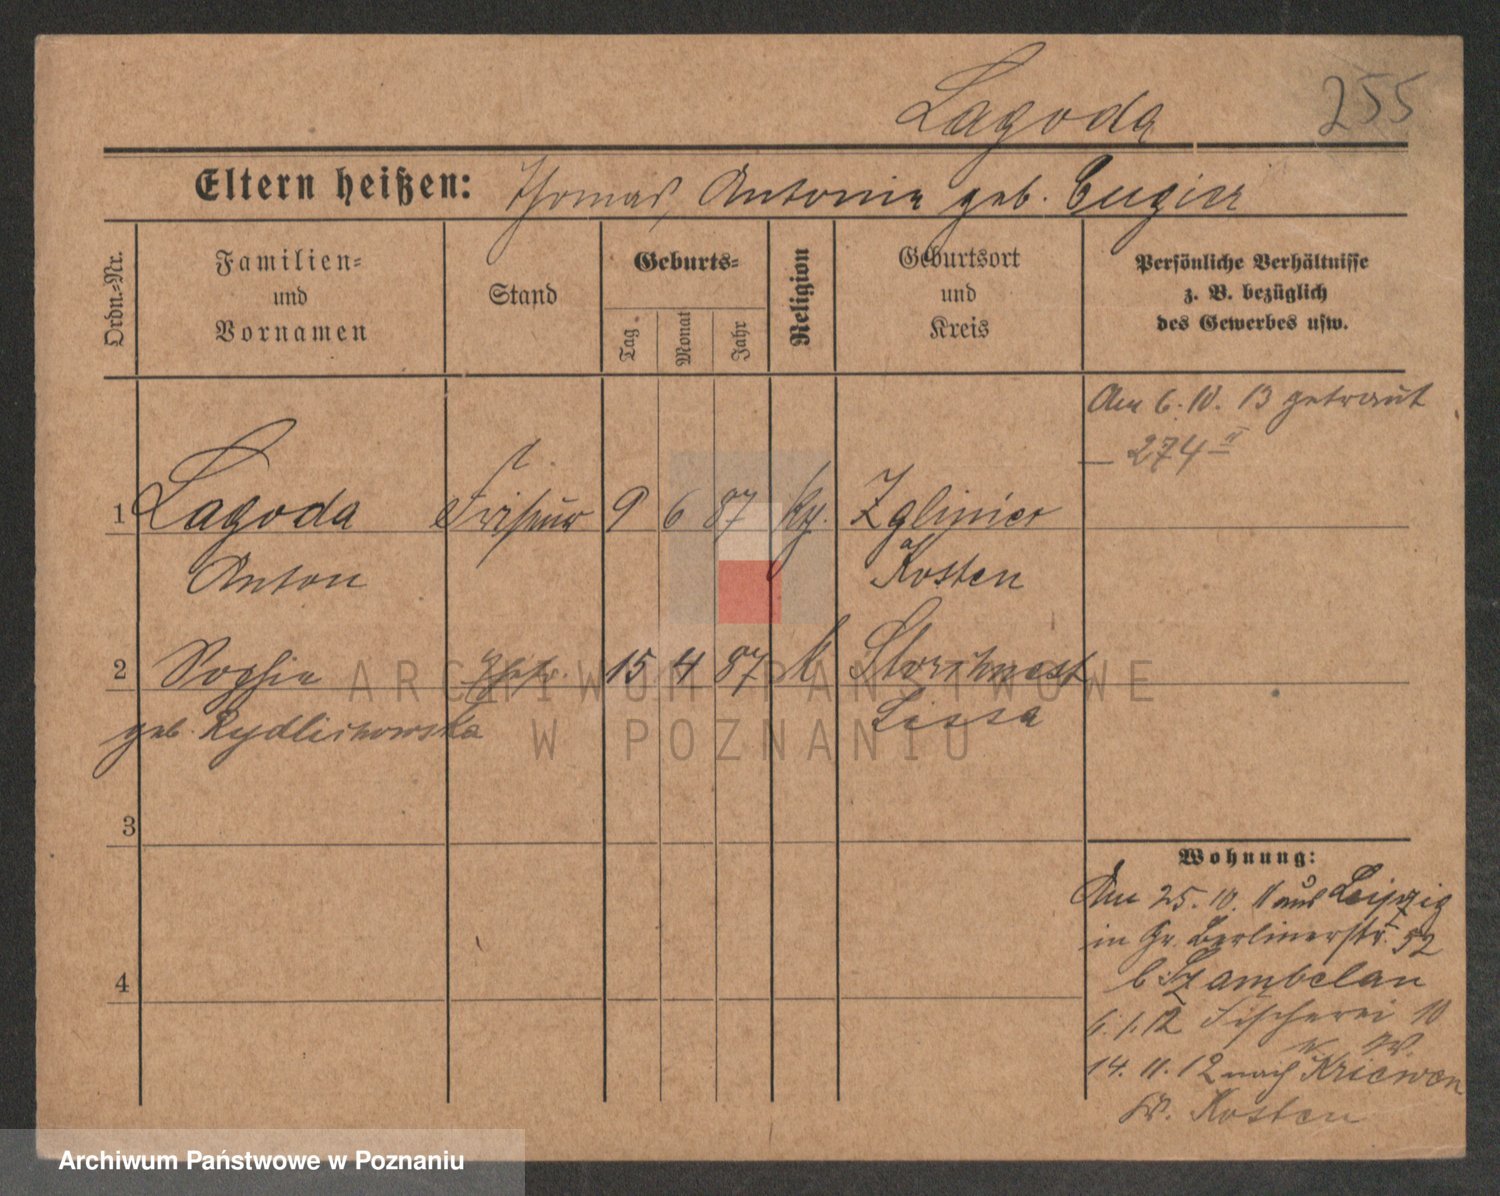 Lagoda
255
Eltern heißen: Thomas, Antonie geb. Cugier
Ordn.-Nr.
Familien-
und
Vornamen
Stand
Geburts-
Tag
Monat
Jahr
Religion
Geburtsort
und
Kreis
Persönliche Verhältnisse
z. B. bezüglich
des Gewerbes usw.
Am 6. 10. 13 getraut
274 II
1 Lagoda Friseur 9 6 87 Zgliniec
Anton Kosten
2 Sophia 15 4 87 k Storchnest
geb. Rydlichowska Lissa
3
4
Wohnung:
Am 25. 10. 11 aus Leipzig
in Gr. Berlinerstr. 52
b Szambelan
6. 1. 12 Fischerei 10
14. 11. 12 nach Kriewen
Kr. Kosten
ARCHIWUM PAŃSTWOWE
W POZNANIU
Archiwum Państwowe w Poznaniu